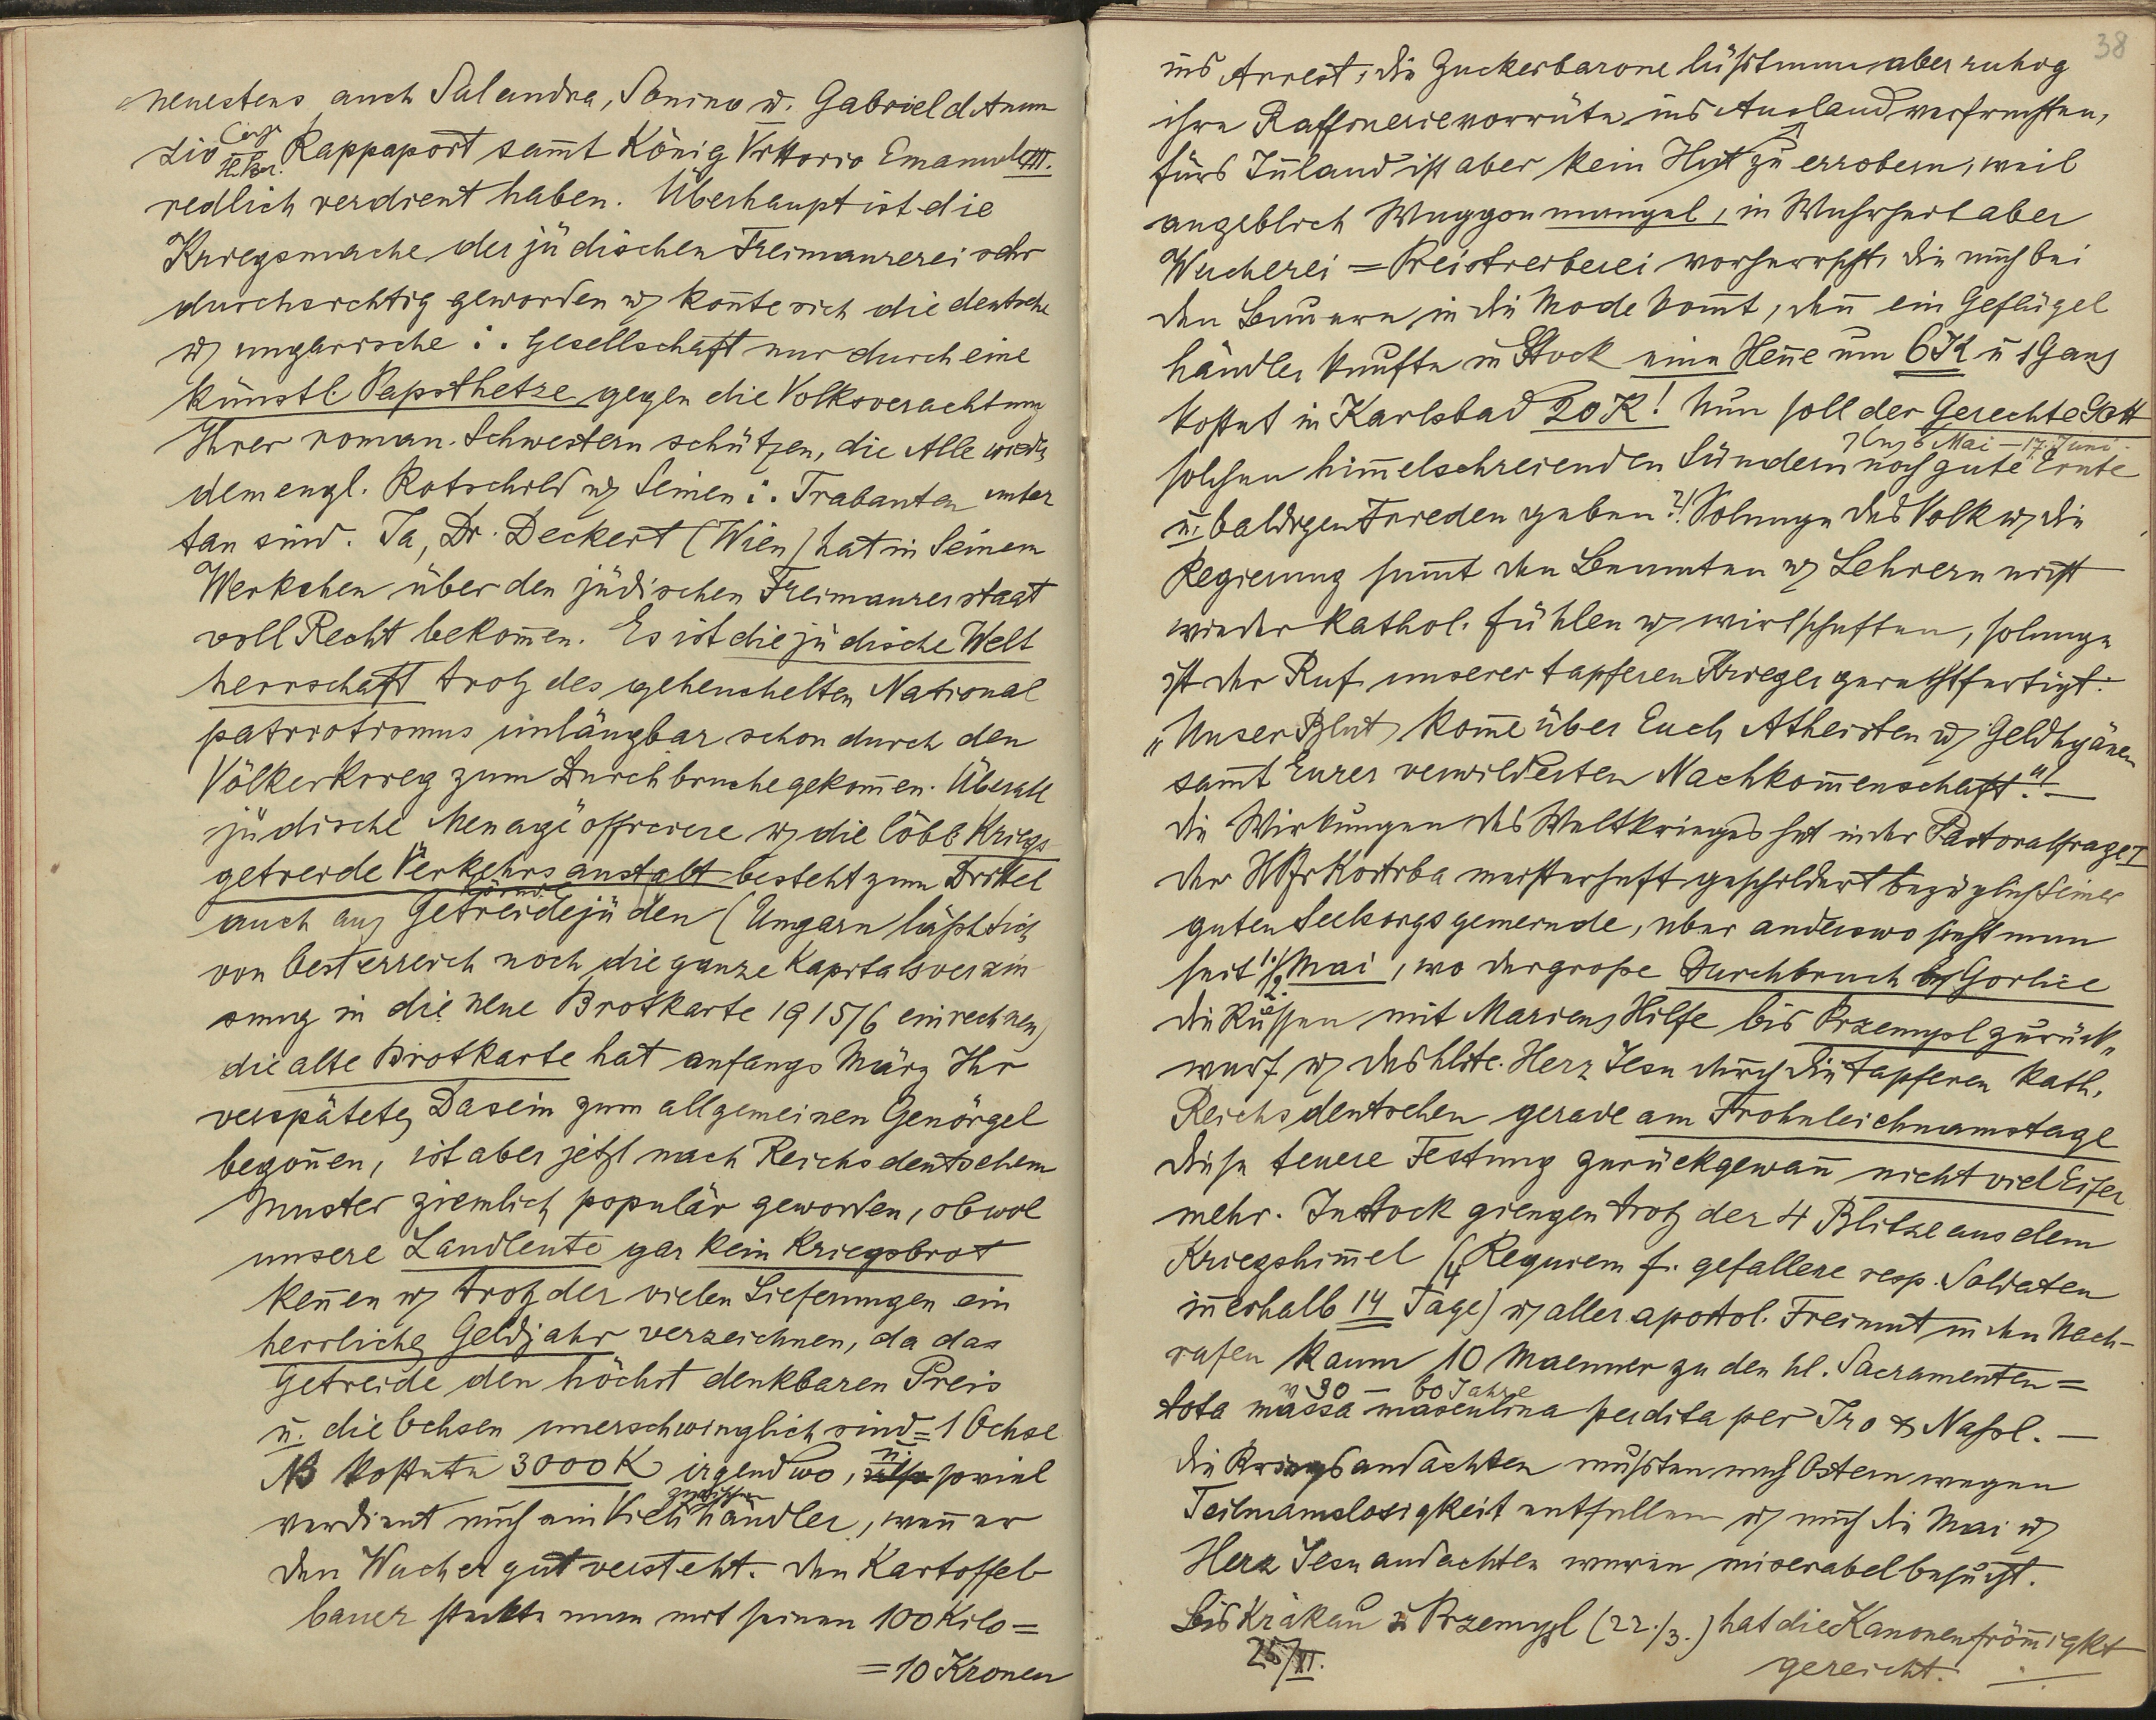 neuestens auch Salandra, Sonino u. Gabriel d Anun
zio Rappaport sam̄t König Vittorio Emanuele III.
redlich verdient haben. Überhaupt ist die
Kriegsmache der jüdischen Freimaurerei sehr
durchsichtig geworden u. kon̄te sich die deutsche
u. ungarische ∴ Gesellschaft nur durch eine
künstl. Papsthetze gegen die Volksverachtung
Ihrer roman. Schwestern schützen, die Alle wieder
dem engl. Rotschild u. Seinen ∴ Trabanten unter
tan sind. Ja, Dr. Deckert (Wien) hat in Seinem
Werkchen über den jüdischen Freimaurerstaat
voll Recht bekom̄en. Es ist die jüdische Welt
herrschaft trotz des geheuchelten National
patriotismus unläugbar schon durch den
Völkerkrieg zum Durchbruche gekom̄en. Überall
jüdische Menageoffiziere u. die löbl. Kriegs
getreide Verkehrsanstalt besteht zum Drittel
auch aus Getreidejuden (Ungarn läßt sich
von Oesterreich noch die ganze Kapitalsverzin
sung in die neue Brotkarte 1915/6 einrechnen)
die alte Brotkarte hat anfangs März Ihr
verspätetes Dasein zum allgemeinen Genörgel
begon̄en, ist aber jetzt nach Reichsdeutschem
Muster ziemlich populär geworden, obwol
unsere Landleute gar kein Kriegsbrot
ken̄en u. trotz der vielen Lieferungen ein
herrliches Geldjahr verzeichnen, da das
Getreide den höchst denkbaren Preis
u. die Ochsen unerschwinglich sind = 1 Ochse
NB kostete 3000 K irgendwo, u. soviel
verdient auch ein Viehzwischenhändler, wen̄ er
den Wucher gut versteht. Den Kartoffel
bauer steckte man mit seinen 100 Kilo =
= 10 Kronen
38
ins Arrest, die Zuckerbarone läßt man aber ruhig
ihre Raffinerievorräte ins Ausland verfrachten,
fürs In̄land ist aber kein Hut zu erobern, weil
angeblich Waggonmangel, in Wahrheit aber
Wucherei = Preistreiberei vorherrscht, die auch bei
den Bauern in die Mode kom̄t, den̄ ein Geflügel
händler kaufte in Stock eine Hen̄e um 6 K u 1 Gans
kostet in Karlsbad 20 K! Nun soll der Gerechte Gott
6 Mai – 17. Juni
solchen him̄elschreienden Sündern noch gute Ernte
u. baldigen Frieden geben?! Solange das Volk u. die
Regierung sam̄t den Beamten u. Lehrern nicht
wieder kathol. fühlen u. wirtschaften, solange
ist der Ruf unserer tapferen Krieger gerechtfertigt:
„Unser Blut kom̄e über Euch Atheisten u. Geldhyänen
sam̄t Eurer verwilderten Nachkom̄enschaft."! –
Die Wirkungen des Weltkrieges hat in der Pastoralfrage I
der H Pfr Kotrba meisterhaft geschildert bezüglich seiner
guten Seelsorgsgemeinde, aber anderswo sieht man
seit 1/2. Mai, wo der große Durchbruch bei Gorlice
die Russen mit Mariens Hilfe bis Przemysl zurück„
warf u. das hlste. Herz Jesu durch die tapferen kath.
Reichsdeutschen gerade am Frohnleichnamstage
diese teuere Festung zurückgewan̄ nicht viel Eifer
mehr. In Stock giengen trotz der 4 Blitze aus dem
Kriegshim̄el (4 Requiem f. gefallene resp. Soldaten
in̄erhalb 14 Tage) u. aller apostol. Freimut in den Nach-
rufen kaum 10 Maenner zu den hl. Sacramenten =
v 30 – 60 Jahre
tota massa masculina perdita per Iro & Nassl. –
Die Kriegsandachten mußten nach Ostern wegen
Teilnamslosigkeit entfallen u. auch die Mai u.
Herz Jesu andachten waren miserabel besucht.
Bis Krakau u Przemysl (22./3.) hat die Kanonenfröm̄igkt
gereicht.